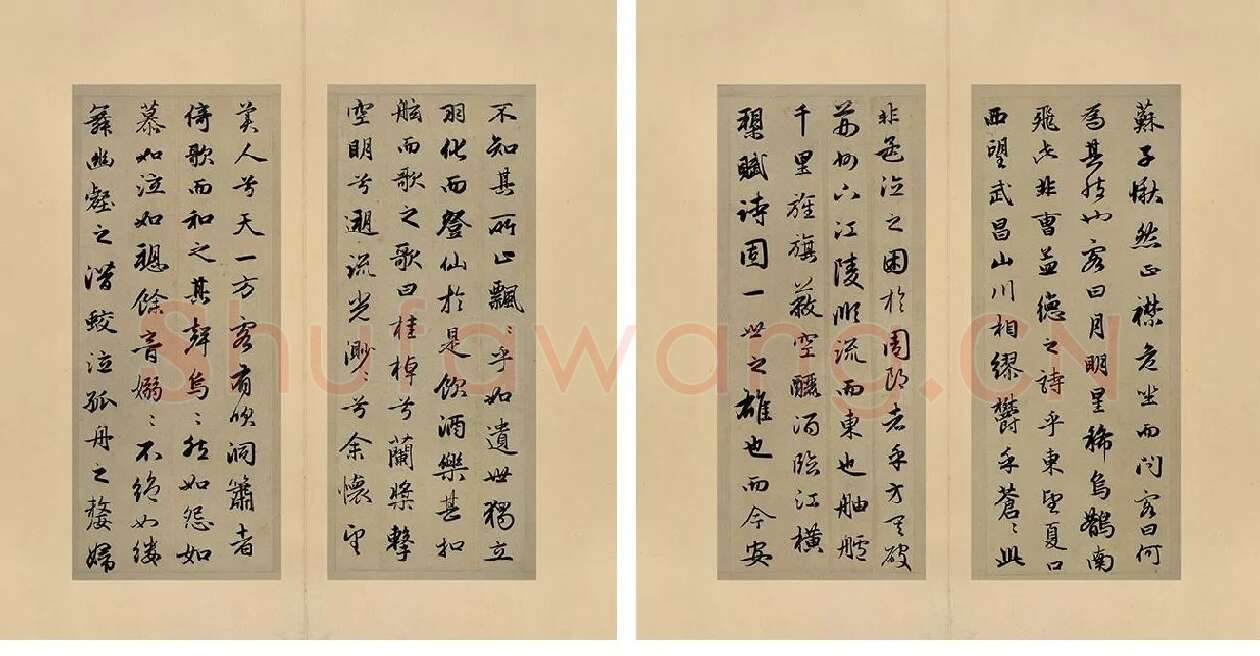 不知其所止飄〻乎如遺世獨立
羽化而登仙於是飲酒樂甚扣
舷而歌之歌曰桂棹兮蘭槳擊
空明兮遡流光渺〻兮余懷望
美人兮天一方客有吹洞簫者
倚歌而和之其聲烏〻然如怨如
慕如泣如愬餘音嫋〻不絕如縷
舞幽壑之潛蛟泣孤舟之嫠婦
蘇子愀然正襟危坐而問客曰何
為其然也客曰月明星稀烏鵲南
飛此非曹孟德之詩乎東望夏口
西望武昌山川相繆鬱乎蒼〻此
非孟德之困於周郎者乎方其破
荊州下江陵順流而東也舳艫
千里旌旗蔽空釃酒臨江橫
槊賦詩固一世之雄也而今安
Shufawang.CN